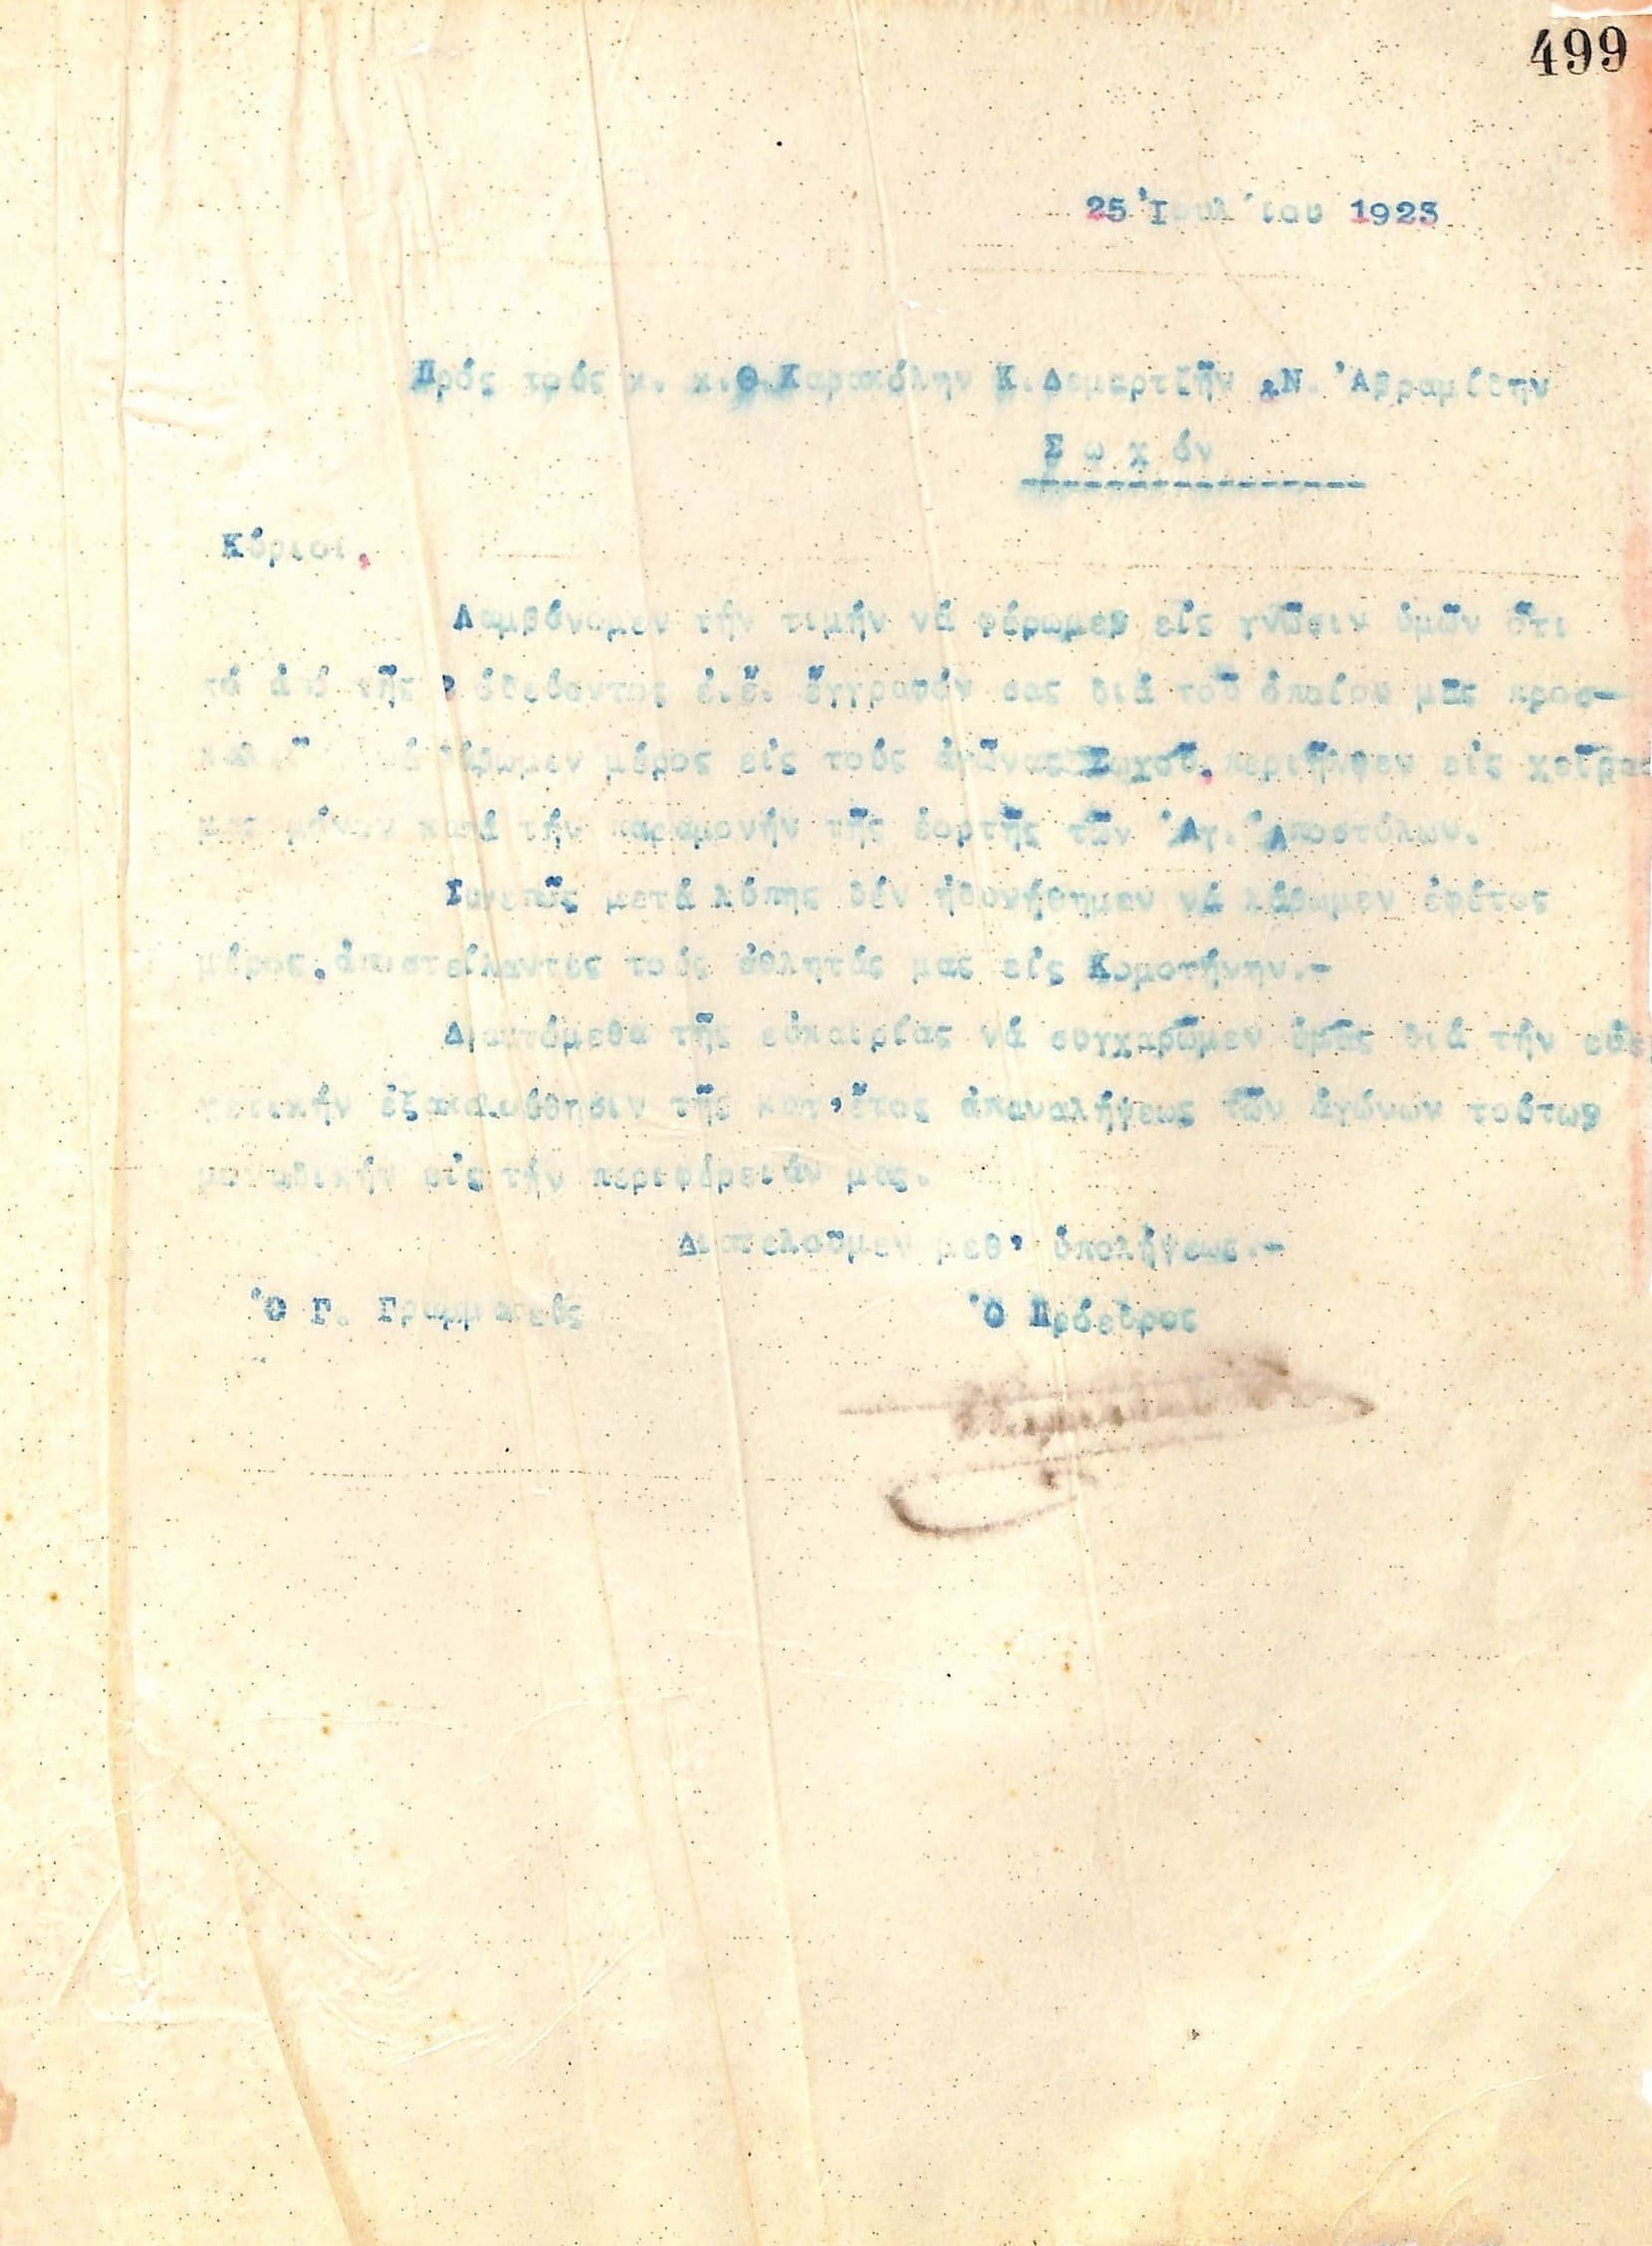 499
25 Ἰουλίου 1923
Πρός τούς κ. κ. Θ. Καρακόλην Κ. Δεμερτζῆν & Ν. Ἀβραμίδην
Σ ω χ όν
Κύριοι,
Λαμβάνομεν τήν τιμήν νά φέρωμεν εἰς γνῶσιν ὑμῶν ὅτι
τό ἀπό τῆς ἐ.ἔ. ἔγγραφόν σας διά τοῦ ὁποίου μᾶς προσ-
λάβωμεν μέρος εἰς τούς ἀγῶνας Σωχοῦ, περιῆλθεν εἰς χεῖρας
μας μόνον κατά τήν παραμονήν τῆς ἑορτῆς τῶν Ἁγ. Ἀποστόλων.
Συνεπῶς μετά λύπης δέν ἠδυνήθημεν νά λάβωμεν ἐφέτος
μέρος, ἀποστείλαντες τούς ἀθλητάς μας εἰς Κομοτήνην.-
Δραττόμεθα τῆς εὐκαιρίας νά συγχαρῶμεν ὑμᾶς διά τήν εὐερ
γετικήν ἐξακολούθησιν τῆς κατ' ἔτος ἐπαναλήψεως τῶν ἀγώνων τούτων
μοναδικήν εἰς τήν περιφέρειάν μας.
Διατελοῦμεν μεθ' ὑπολήψεως.-
Ὁ Γ. Γραμματεύς Ὁ Πρόεδρος